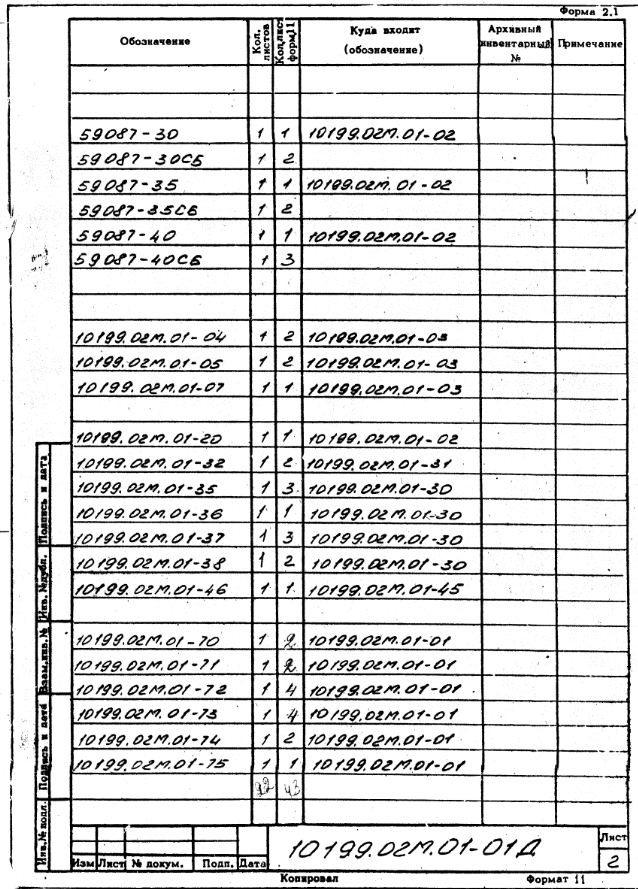 Форма 2.1
Обозначение Кол. листов Кол.лист форм.11 Куда входит (обозначение) Архивный инвентарный № Примечание
59087-30 1 1 10199.02М.01-02
59087-30СБ 1 2
59087-35 1 1 10199.02М.01-02
59087-35СБ 1 2
59087-40 1 1 10199.02М.01-02
59087-40СБ 1 3
10199.02М.01-04 1 2 10199.02М.01-03
10199.02М.01-05 1 2 10199.02М.01-03
10199.02М.01-07 1 1 10199.02М.01-03
10199.02М.01-20 1 1 10199.02М.01-02
10199.02М.01-32 1 2 10199.02М.01-31
10199.02М.01-35 1 3 10199.02М.01-30
10199.02М.01-36 1 1 10199.02М.01-30
10199.02М.01-37 1 3 10199.02М.01-30
10199.02М.01-38 1 2 10199.02М.01-30
10199.02М.01-46 1 1 10199.02М.01-45
10199.02М.01-70 1 2 10199.02М.01-01
10199.02М.01-71 1 2 10199.02М.01-01
10199.02М.01-72 1 4 10199.02М.01-01
10199.02М.01-73 1 4 10199.02М.01-01
10199.02М.01-74 1 2 10199.02М.01-01
10199.02М.01-75 1 1 10199.02М.01-01
22 43
Подпись и дата
Инв. №дубл.
Взам.инв.№
Подпись и дата
Инв.№ подл.
10199.02М.01-01Д
Лист
2
Изм Лист № докум. Подп. Дата
Копировал Формат 11